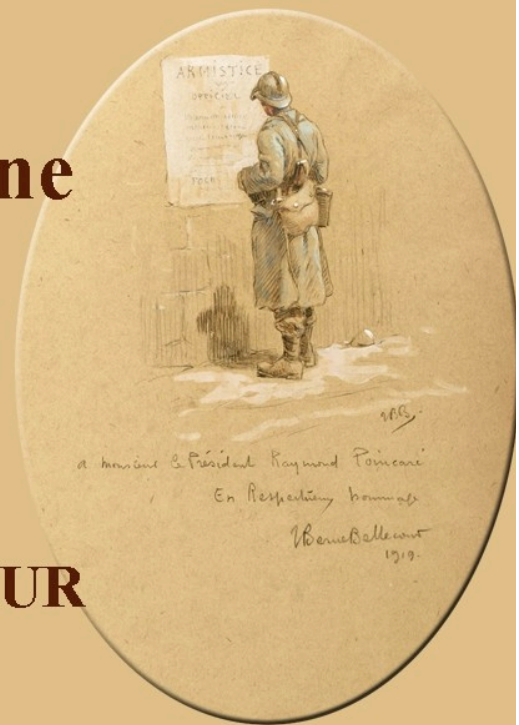 ne
ARMISTICE
OFFICIEL
FOCH
JPB.
a monsieur le Président Raymond Poincaré
En Respectueux hommage
JBerneBellecour
1919.
UR